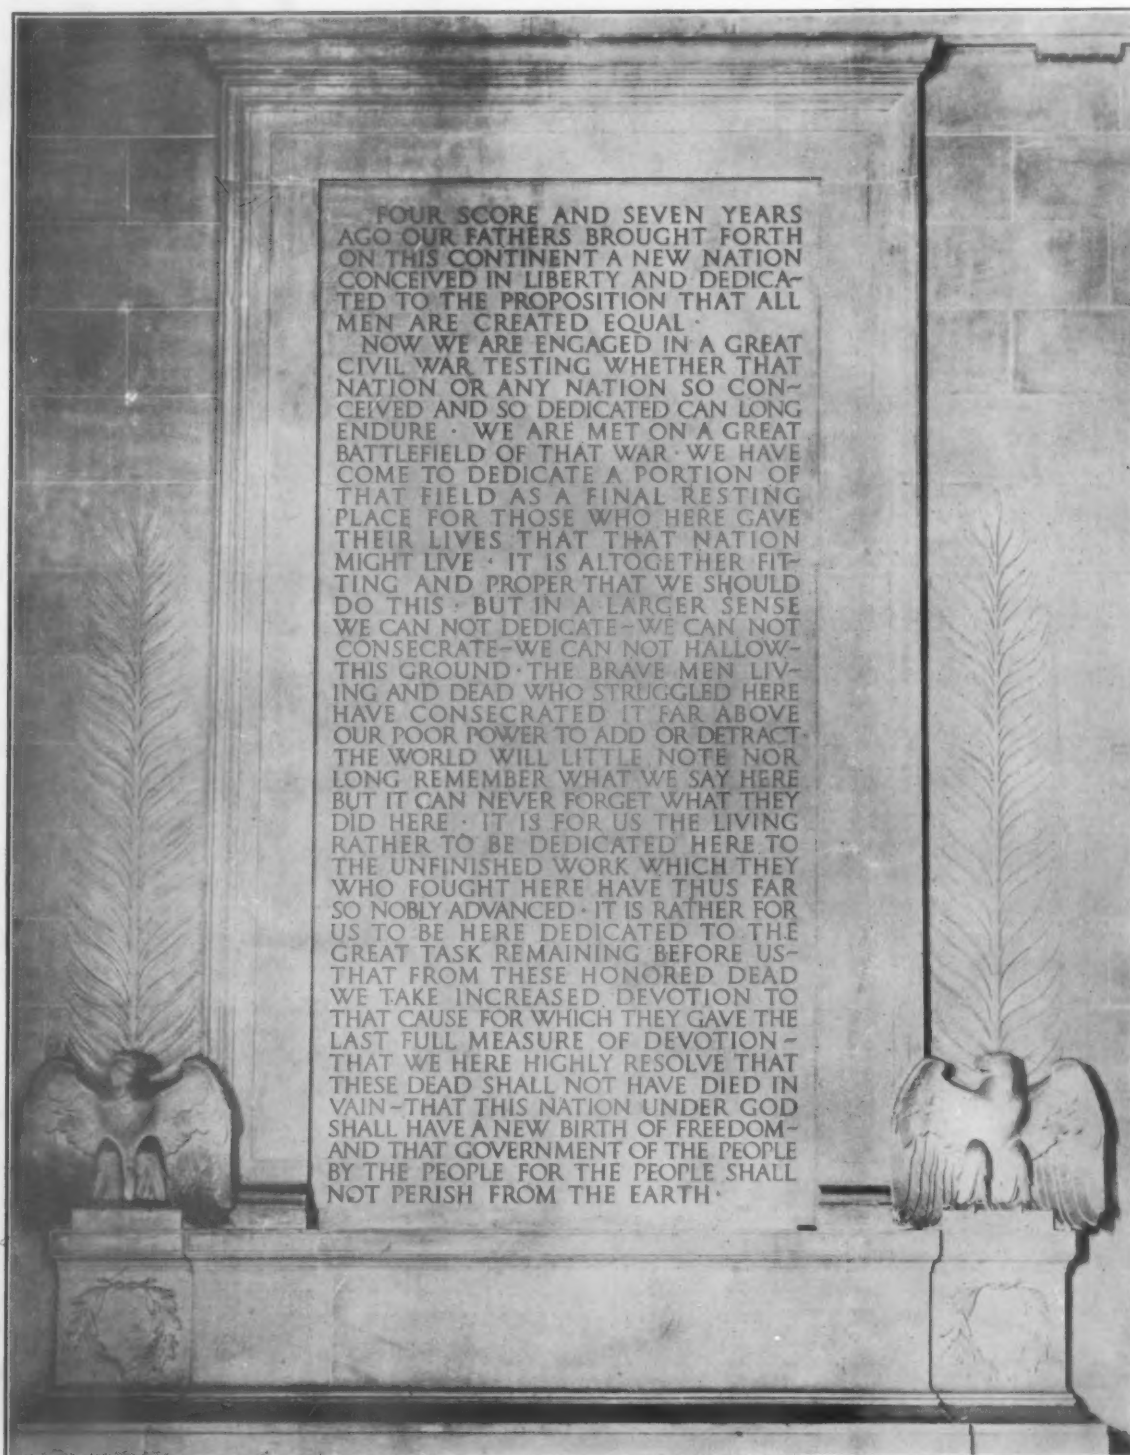 FOUR SCORE AND SEVEN YEARS
AGO OUR FATHERS BROUGHT FORTH
ON THIS CONTINENT A NEW NATION
CONCEIVED IN LIBERTY AND DEDICA~
TED TO THE PROPOSITION THAT ALL
MEN ARE CREATED EQUAL ·
NOW WE ARE ENGAGED IN A GREAT
CIVIL WAR TESTING WHETHER THAT
NATION OR ANY NATION SO CON~
CEIVED AND SO DEDICATED CAN LONG
ENDURE · WE ARE MET ON A GREAT
BATTLEFIELD OF THAT WAR · WE HAVE
COME TO DEDICATE A PORTION OF
THAT FIELD AS A FINAL RESTING
PLACE FOR THOSE WHO HERE GAVE
THEIR LIVES THAT THAT NATION
MIGHT LIVE · IT IS ALTOGETHER FIT~
TING AND PROPER THAT WE SHOULD
DO THIS · BUT IN A LARGER SENSE
WE CAN NOT DEDICATE~WE CAN NOT
CONSECRATE~WE CAN NOT HALLOW~
THIS GROUND · THE BRAVE MEN LIV~
ING AND DEAD WHO STRUGGLED HERE
HAVE CONSECRATED IT FAR ABOVE
OUR POOR POWER TO ADD OR DETRACT ·
THE WORLD WILL LITTLE NOTE NOR
LONG REMEMBER WHAT WE SAY HERE
BUT IT CAN NEVER FORGET WHAT THEY
DID HERE · IT IS FOR US THE LIVING
RATHER TO BE DEDICATED HERE TO
THE UNFINISHED WORK WHICH THEY
WHO FOUGHT HERE HAVE THUS FAR
SO NOBLY ADVANCED · IT IS RATHER FOR
US TO BE HERE DEDICATED TO THE
GREAT TASK REMAINING BEFORE US~
THAT FROM THESE HONORED DEAD
WE TAKE INCREASED DEVOTION TO
THAT CAUSE FOR WHICH THEY GAVE THE
LAST FULL MEASURE OF DEVOTION~
THAT WE HERE HIGHLY RESOLVE THAT
THESE DEAD SHALL NOT HAVE DIED IN
VAIN~THAT THIS NATION UNDER GOD
SHALL HAVE A NEW BIRTH OF FREEDOM~
AND THAT GOVERNMENT OF THE PEOPLE
BY THE PEOPLE FOR THE PEOPLE SHALL
NOT PERISH FROM THE EARTH ·